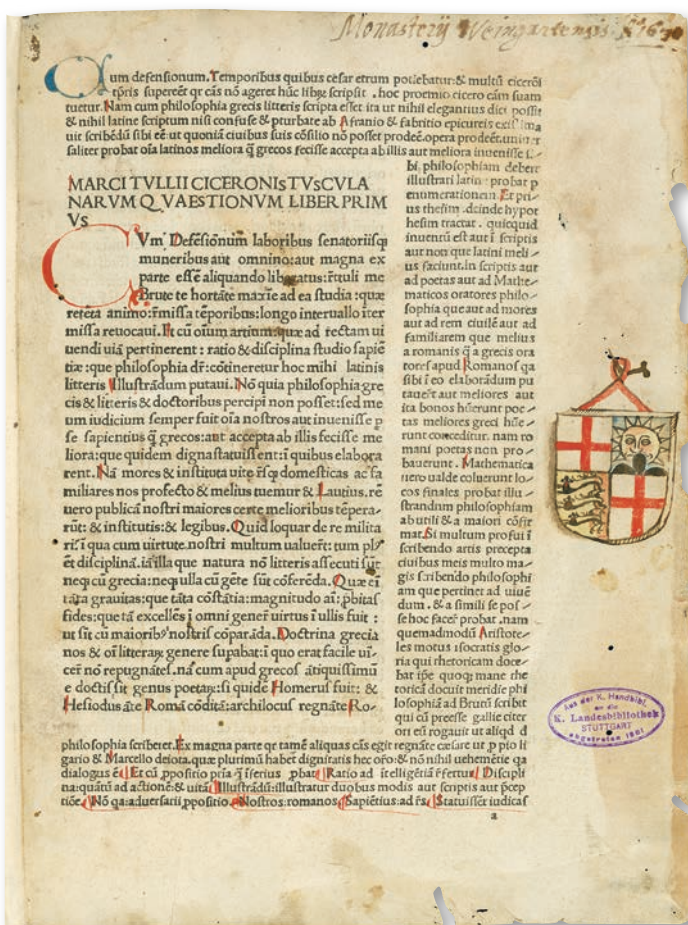 Monasterij Weingartensis Aº 1630
Cum defensionum. Temporibus quibus cesar rerum potiebatur: & multū ciceroī
tp̄ris supereēt qr cās nō ageret hūc librꝫ scripsit. hoc proemio cicero cām suam
tuetur. Nam cum philosophia grecis litteris scripta esset ita ut nihil elegantius dici possit
& nihil latine scriptum nisi confuse & pturbate ab Afranio & fabritio epicureis existima
uit scribēdū sibi eē ut quoniā ciuibus suis cōsilio nō posset prodeē. opera prodeēt. uniuer
saliter probat oīa latinos meliora q̄ grecos fecisse accepta ab illis aut meliora inuenisse
MARCI TVLLII CICERONIS TVSCVLA
NARVM QVAESTIONVM LIBER PRIM
VS
CVm Defēsionum laboribus senatoriisq
muneribus aut omnino: aut magna ex
parte essē aliquando liberatus: rētuli me
Brute te hortāte maxīe ad ea studia: quæ
retēta animo: rēmissa tēporibus: longo interuallo īter
missa reuocaui. Et cū oīum artium quæ ad rectam ui
uendi uiā pertinerent: ratio & disciplina studio sapiē
tiæ: que philosophia dr̄: cōtineretur hoc mihi latinis
litteris Illustrādum putaui. Nō quia philosophia gre
cis & litteris & doctoribus percipi non posset: sed me
um iudicium semper fuit oīa nostros aut inuenisse p
se sapientius q̄ grecos: aut accepta ab illis fecisse me
liora: que quidem digna statuissent: ī quibus elabora
rent. Nā mores & instituta uite rēsq domesticas ac fa
miliares nos profecto & melius tuemur & Lautius. rē
uero publicā nostri maiores certe melioribus tēpera-
rūt: & institutis: & legibus. Quid loquar de re milita
ri: ī qua cum uirtute nostri multum ualuert̄: tum pl9
ēt disciplinā. iā illa que natura nō litteris assecuti sūt
neq cū grecia: neq ulla cū gēte sūt cōferēda. Quæ eī
tāta grauitas: que tāta cōstātia: magnitudo aī: pbitas
fides: que tā excellēs ī omni gener̄ uirtus ī ullis fuit:
ut sit cū maiorib9 nostris cōparāda. Doctrina grecia
nos & oī litterarꝫ genere supabat: ī quo erat facile uī-
cer̄ nō repugnātes. nā cum apud grecos ātiquissimū
e doctis sit genus poetarꝫ: si quidē Homerus fuit: &
Hesiodus āte Romā cōditā: archilocus regnāte Ro-
bi. philosophiam debere
illustrari latin. probat p
enumerationem. Et pri-
us thesim. deinde hypot
hesim tractat. quicquid
inuentū est aut ī scriptis
aut non que latini meli-
us faciunt. in scriptis aut
ad poetas aut ad Mathe-
maticos oratores philo-
sophia que aut ad mores
aut ad rem ciuilē aut ad
familiarem que melius
a romanis q̄ a grecis ora
tores apud Romanos qa
sibi ī eo elaborādum pu
tauer̄t aut meliores aut
ita bonos hūerunt poe-
tas meliores greci hūe-
runt conceditur. nam ro
mani poetas non pro-
bauerunt. Mathematica
uero ualde coluerunt lo-
cos finales probat illu-
strandum philosophiam
ab utili & a maiori cōfir
mat. Si multum profui ī
scribendo artis precepta
ciuibus meis multo ma-
gis scribendo philosophi
am que pertinet ad uiuē
dum. & a simili se pos-
se hoc facer̄ probat. nam
quemadmodū Aristote-
les motus isocratis glo-
ria qui rhetoricam doce-
bat ipē quoq mane rhe
toricā docuit meridie phi
losophiā ad Brutū scribit
qui cū preesse gallie citer
ori eū rogauit ut aliqd d
philosophia scriberet. Ex magna parte qr tamē aliquas cās egit regnāte cæsare ut p pio li
gario & Marcello deiota. quæ plurimū habēt dignitatis hec orō: & nō nihil uehemētie qa
dialogus ē Et cū ppositio pria q̄ īferius pbat Ratio ad ītelligētiā rēfertur Discipli
na: quātū ad actionē: & uitā Illustrādū: illustratur duobus modis aut scriptis aut pcep
tiōe. Nō qa: aduersarii ppositio. Nostros: romanos Sapiētius: ad rēs Statuissēt iudicas
a
Aus der K. Handbibl.
an die
K. Landesbibliothek
STUTTGART
abgetreten 1901